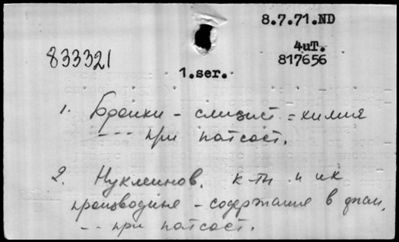 8.7.71.ND
4иТ.
833321
817656
1.ser.
1. Бронхи - слизист = химия
--- при патсост.
2. Нуклеинов. к-ты и их
производные - содержание в
--- при патсост.